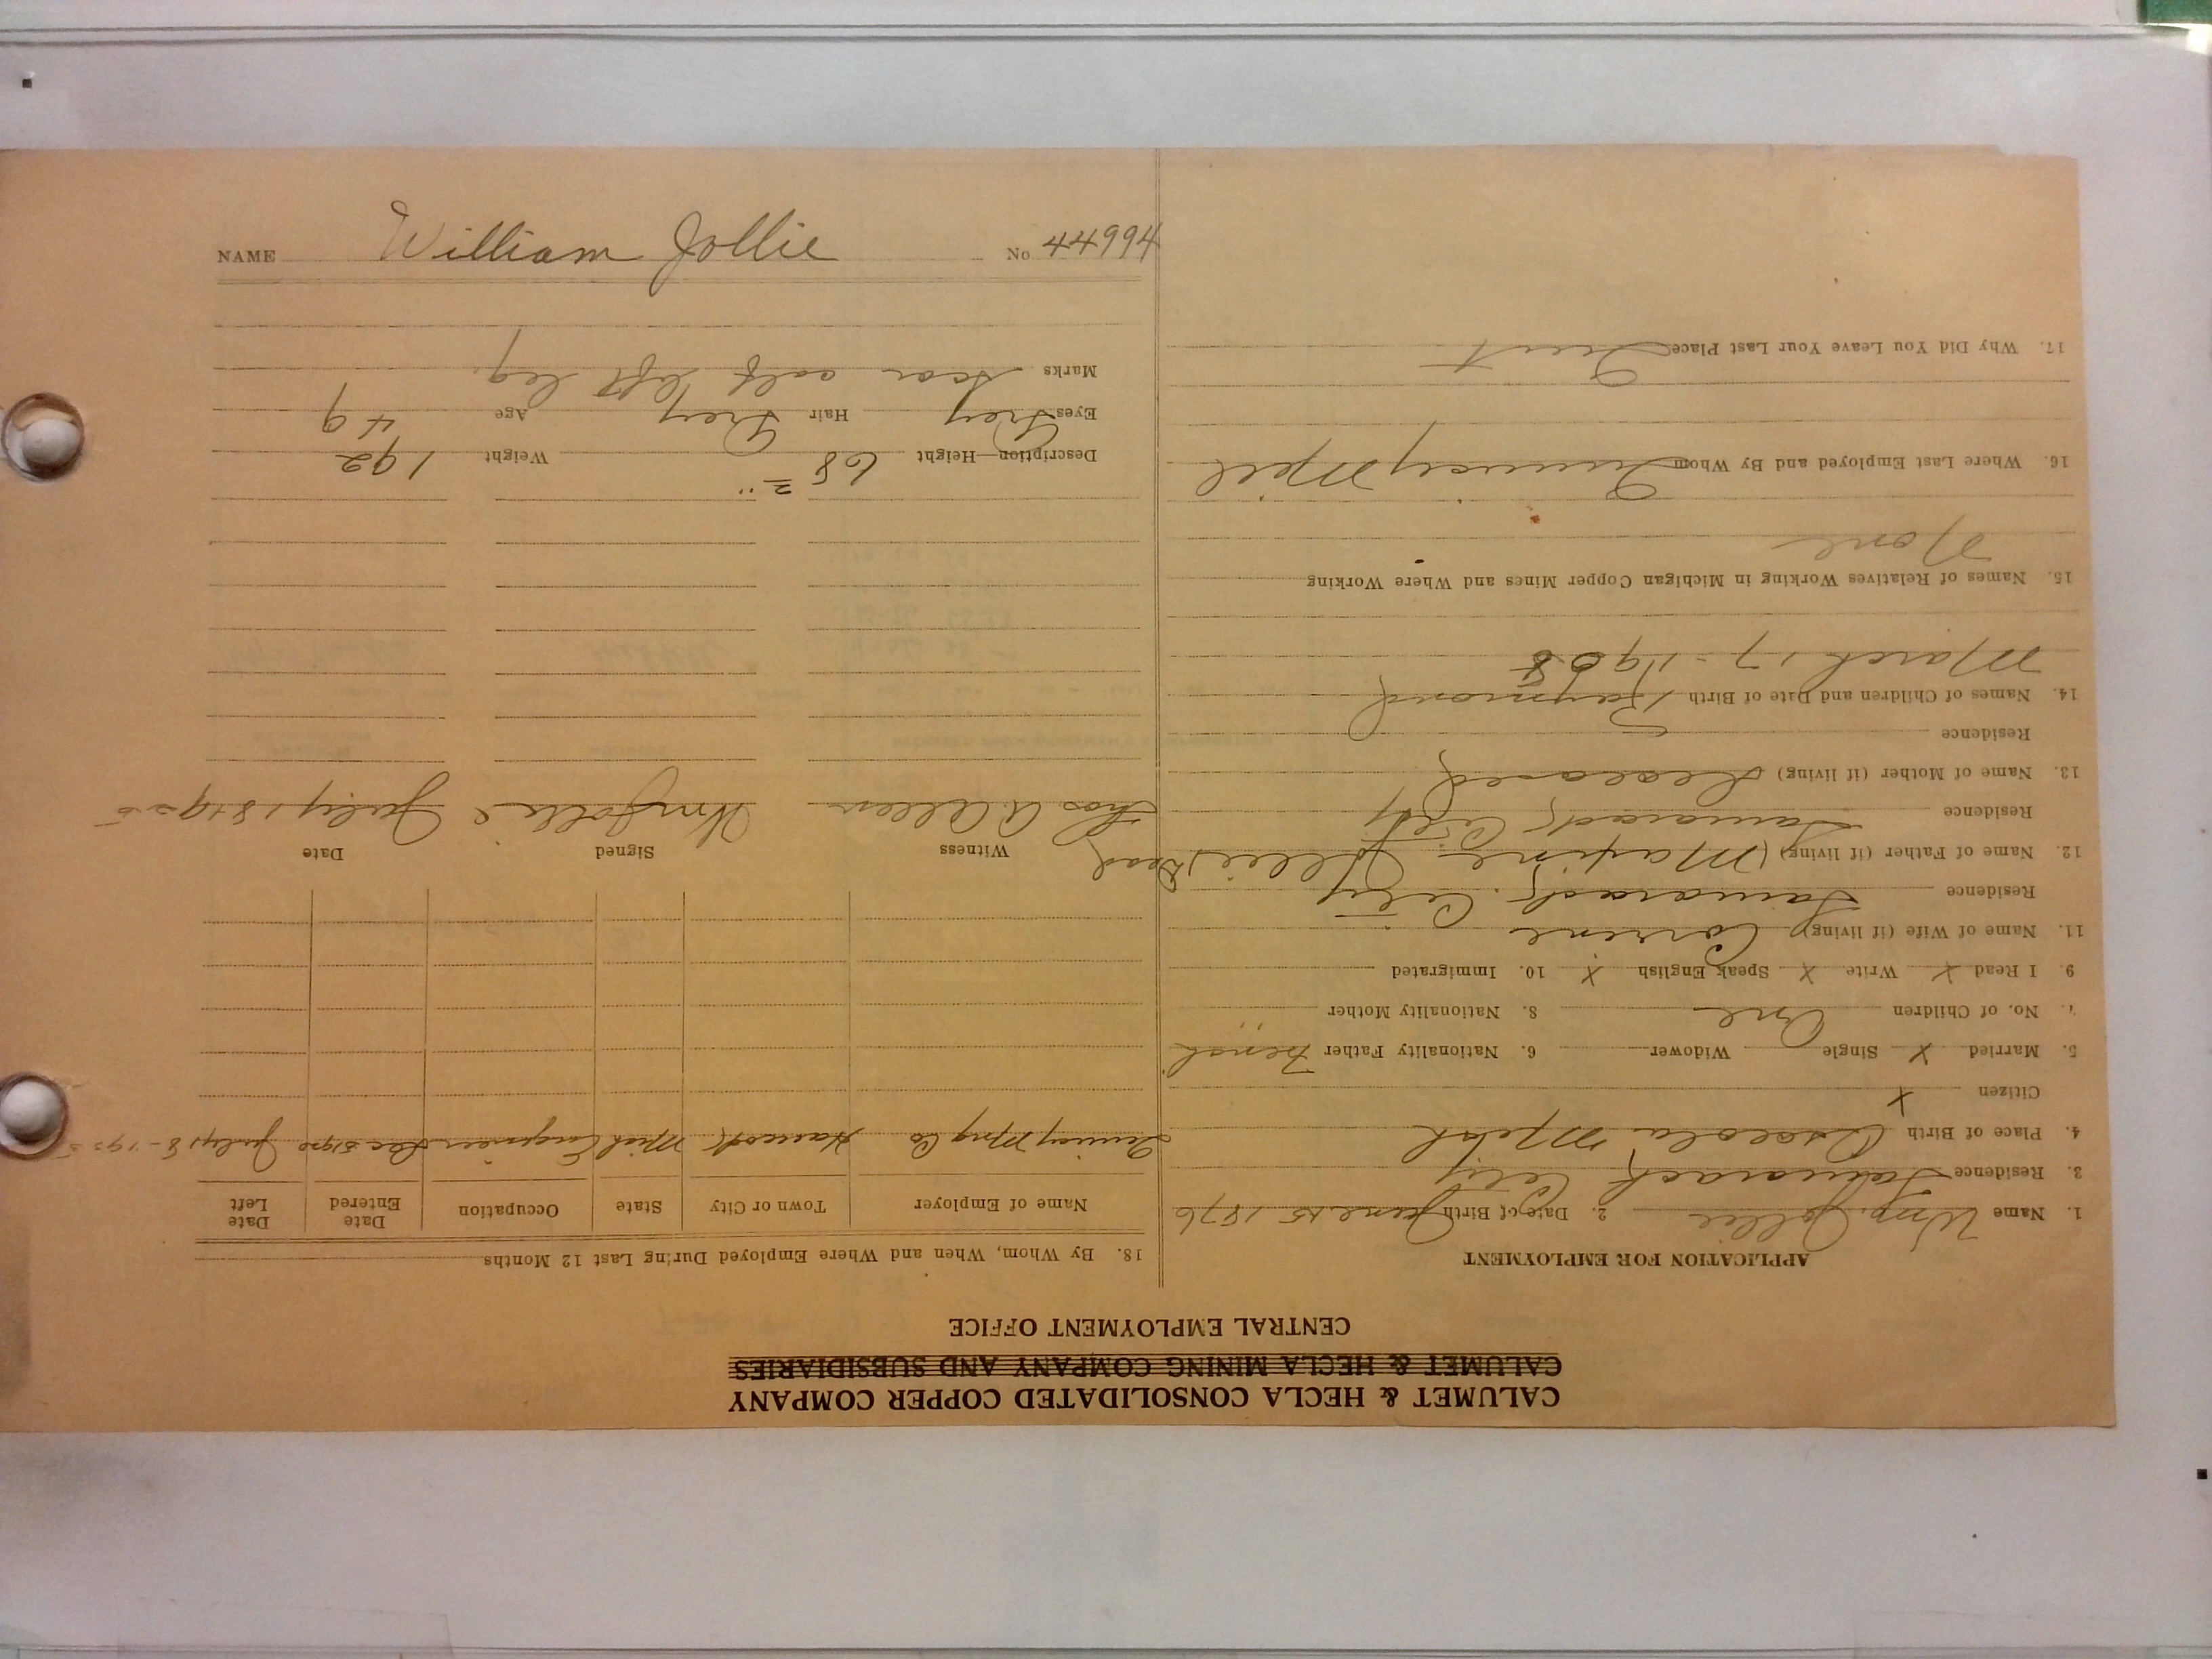 CALUMET & HECLA CONSOLIDATED COPPER COMPANY
CALUMET & HECLA MINING COMPANY AND SUBSIDIARIES
CENTRAL EMPLOYMENT OFFICE
APPLICATION FOR EMPLOYMENT
1. Name Wm. Jollie 2. Date of Birth June 15 1876
3. Residence Tamarack City
4. Place of Birth Osceola Mich
Citizen x
5. Married x Single Widower 6. Nationality Father French
7. No. of Children One 8. Nationality Mother " "
9. I Read x Write x Speak English x 10. Immigrated
11. Name of Wife (if living) Corrine
Residence Tamarack City
12. Name of Father (if living) (Maxime Jollie) Dead
Residence Tamarack City
13. Name of Mother (if living) Deceased
Residence
14. Names of Children and Date of Birth Raymond
March 17 - 1908
15. Names of Relatives Working in Michigan Copper Mines and Where Working
None
16. Where Last Employed and By Whom Quincy Mill
17. Why Did You Leave Your Last Place Quit
18. By Whom, When and Where Employed During Last 12 Months
Name of Employer Town or City State Occupation Date Entered Date Left
Quincy Mng Co Hancock Mich Engineer July 18 - 1925
Witness Signed Date
Thos A Allen Wm Jollie July 18 1925
Description—Height 68 2" Weight 192
Eyes Grey Hair Grey Age 49
Marks Scar calf left leg.
NAME William Jollie No 44994